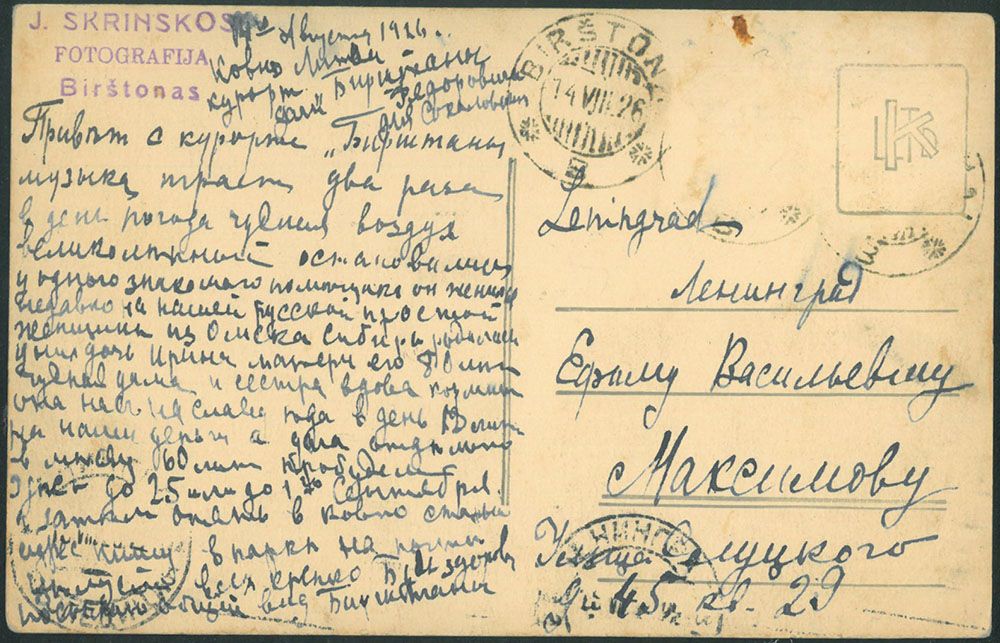 J. SKRINSKOS
FOTOGRAFIJA
Birštonas
14го Августа 1926
Ковно Литва
курорт Бирштаны
дача Федоровича
для Соколовских
Привѣт с курорта „Бирштаны
музыка играет два раза
в день погода чудная воздух
великолѣпный остановились
у одного знакомого помощика он женился
недавно на нашей русской простой
женщины из Омска Сибиры родилась
у них дочь Ирина матери его 80 лѣт
чудная дама и сестра вдова кормит
она нас на славу в день 10 лит
на наши деньги а дача отдельно
в мѣсяц 60 лит пробудем
здесь до 25 или до 1го Сентября
а затѣм опять в Ковно старый
адрес
в парки на
всех крепко Б. и здоров
общий вид Бирштаны
BIRŠTONAS
14 VIII 26
Leningrad
Ленинград
Ефиму Васильевичу
Максимову
Улица Слуцкого
д. 45 кв. 29
ЛЕНИНГРАД